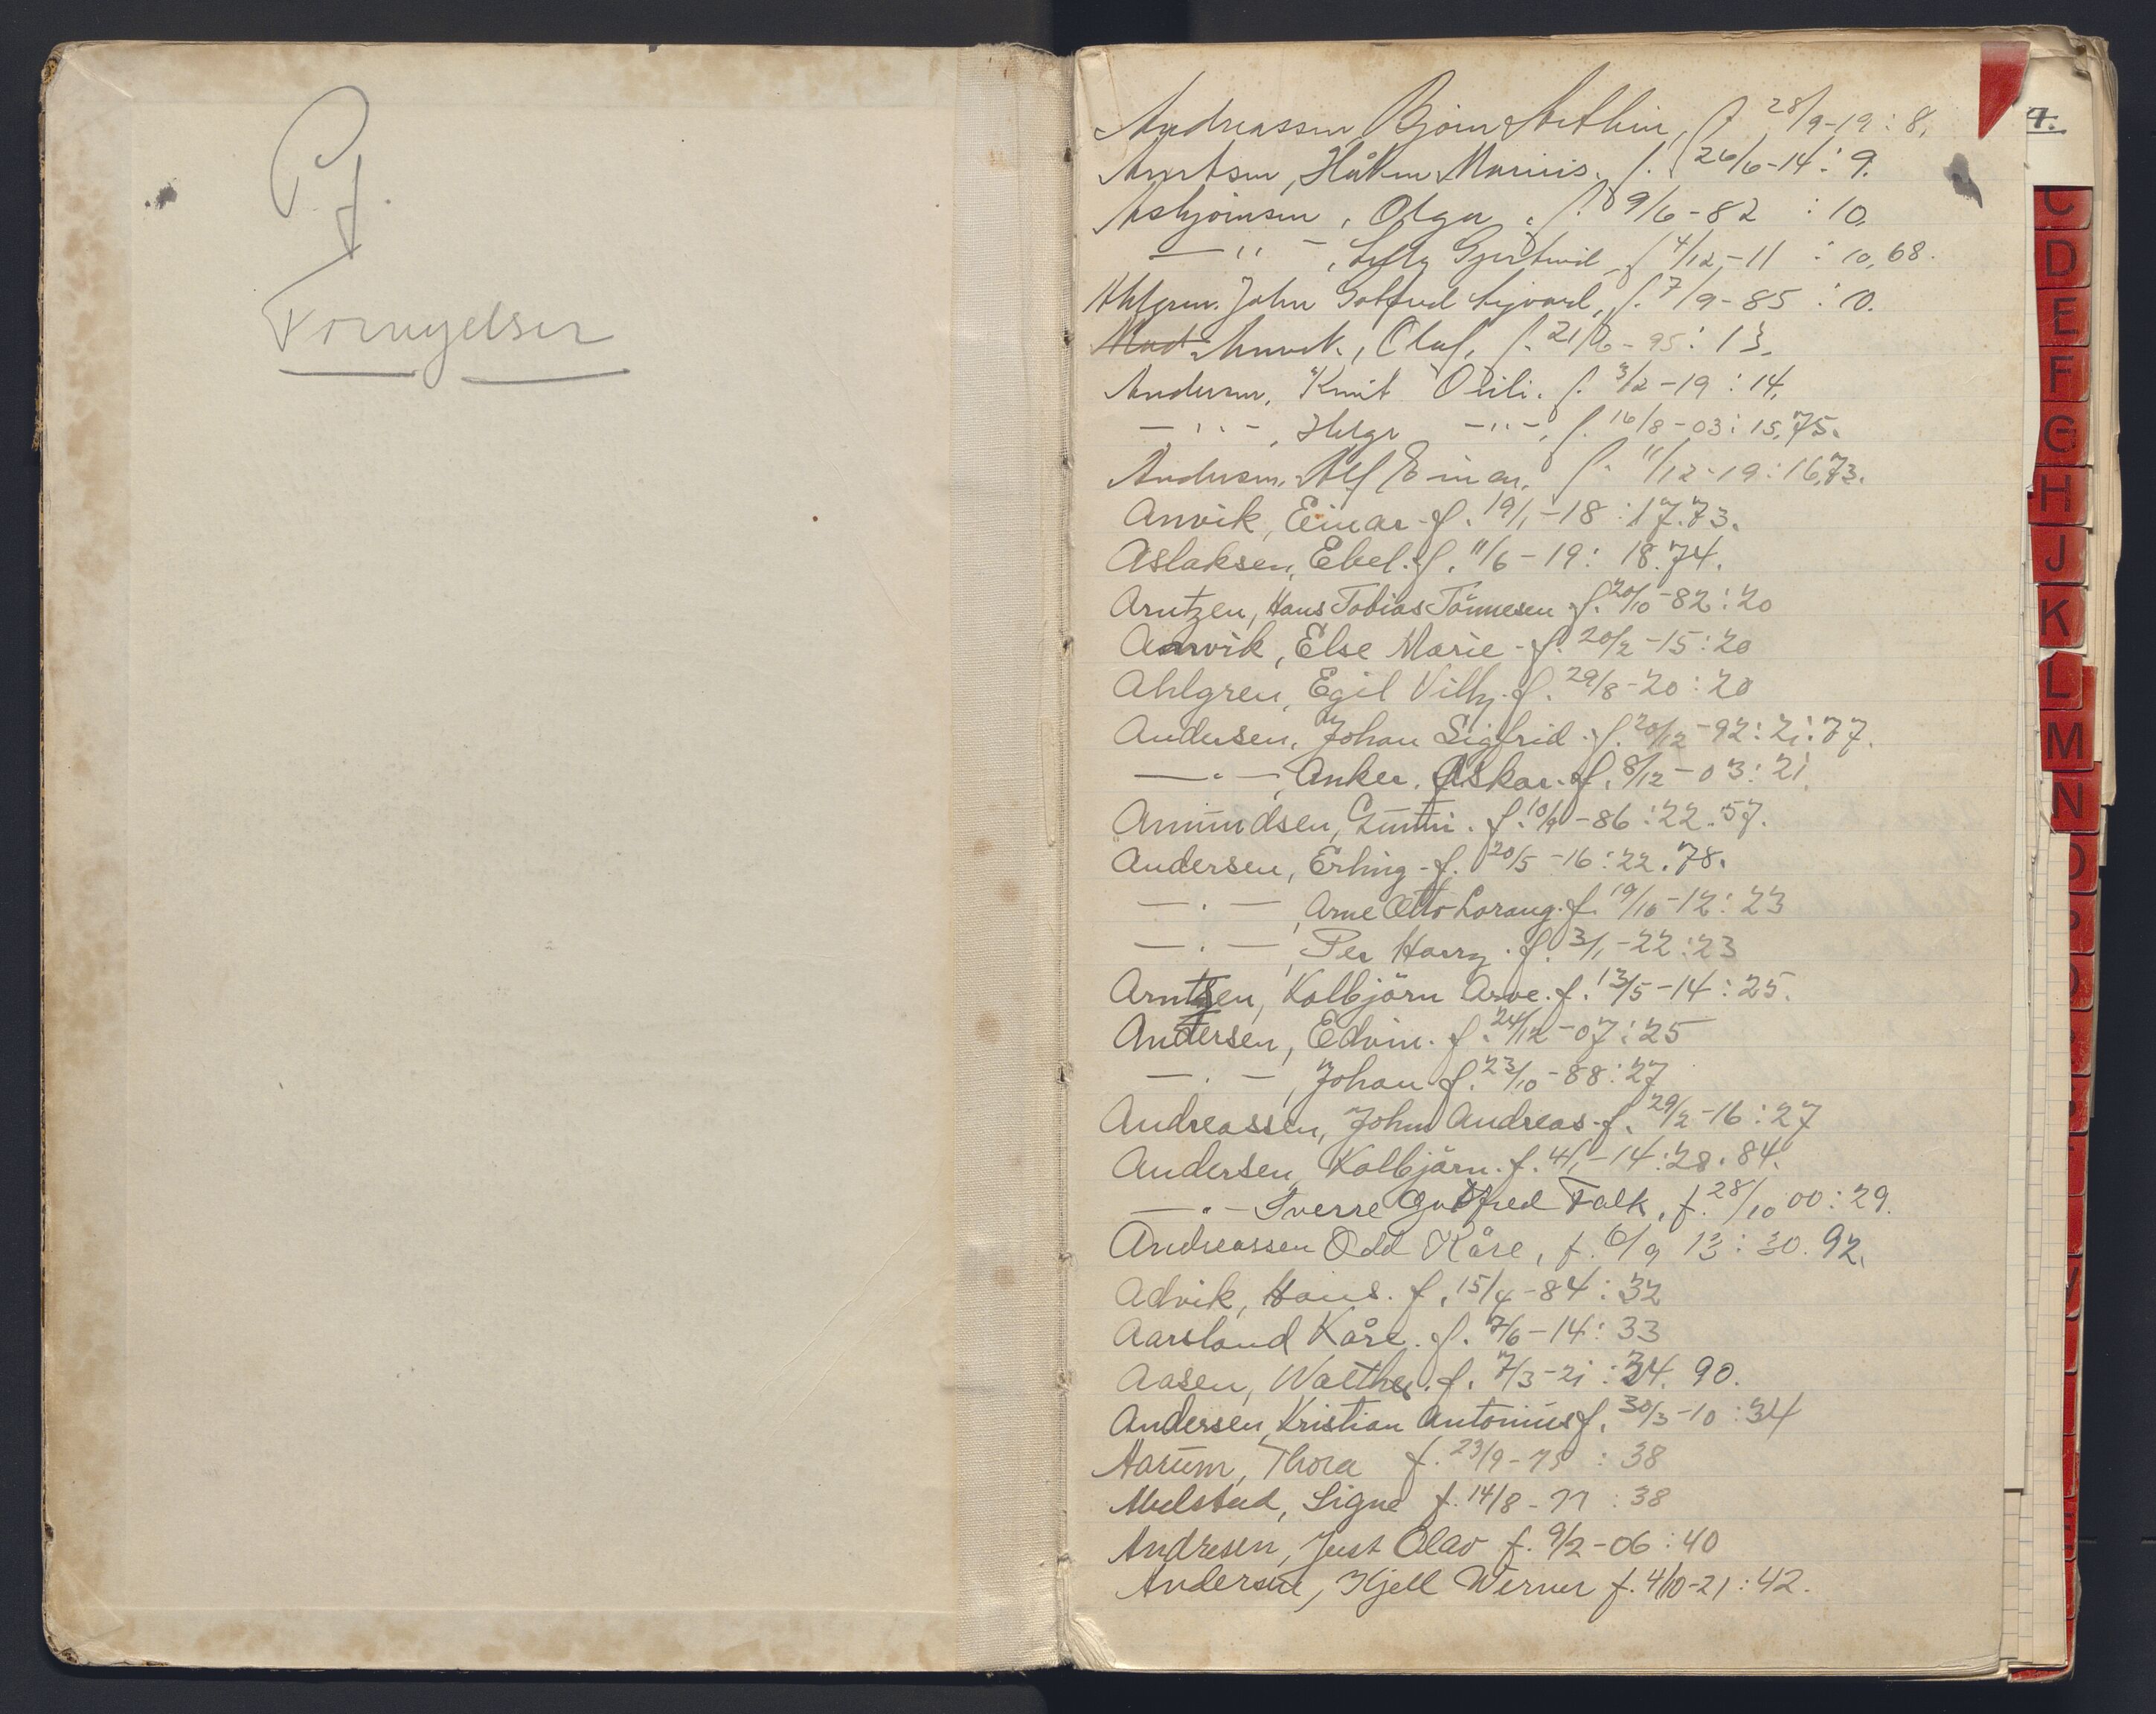 Pj.
Fornyelser
4.
Andreassen, Bjørn Arthur, f. 28/9-19 : 8.
Arntsen, Håkon Marius. f. 26/6-14 : 9.
Asbjørnsen, Olga, f. 9/6-82 : 10.
—"—, Lilly Gjertrud f. 4/12-11 : 10, 68.
Ahlgren, John Gotfred Sigvard, f. 7/9-85 : 10.
Annvik, Olaf, f. 21/6-95 : 13.
Andersen, Knut Oeili. f. 3/2-19 : 14.
—"—, Helge —"—, f. 16/8-03 : 15, 75.
Andersen, Alf Einar, f. 11/12-19 : 16, 73.
Anvik, Einar - f. 19/1-18 : 17. 73.
Aslaksen, Ebel. f. 11/6-19 : 18. 74.
Arntzen, Hans Tobias Tönnesen f. 20/10-82 : 20
Aarvik, Else Marie - f. 20/2-15 : 20
Ahlgren, Egil Villy. f. 29/8-20 : 20
Andersen, Johan Sigfrid. f. 20/12-92 : 21 : 77.
—.—, Anker. Oskar. f. 8/12-03 : 21.
Amundsen, Gunni. f. 10/9-86 : 22. 57.
Andersen, Erling - f. 20/5-16 : 22. 78.
—.—, Arne Otto Lorang. f. 19/10-12 : 23
—.—, Per Harry. f. 3/1-22 : 23
Arntzen, Kolbjörn Arve. f. 13/5-14 : 25.
Andersen, Edvin. f. 24/12-07 : 25
—.—, Johan f. 23/10-88 : 27
Andreassen, John Andreas - f. 29/2-16 : 27
Andersen, Kolbjörn. f. 4/1-14 : 28. 84.
—.— Sverre Gotfred Falk, f. 28/10 00 : 29.
Andreassen Odd Kåre, f. 6/9 13 : 30. 92.
Advik, Hans. f. 15/4-84 : 32
Aarsland Kåre. f. 7/6-14 : 33
Aasen, Walther. f. 7/3-21 : 34. 90.
Andersen, Kristian Antonius f. 30/3-10 : 34
Aarum, Thora f. 23/9-75 : 38
Abelsted, Signe f. 14/8-77 : 38
Andresen, Just Olav f. 9/2-06 : 40
Andersen, Kjell Werner f. 4/10-21 : 42.
C
D
E
F
G
H
J
K
L
M
N